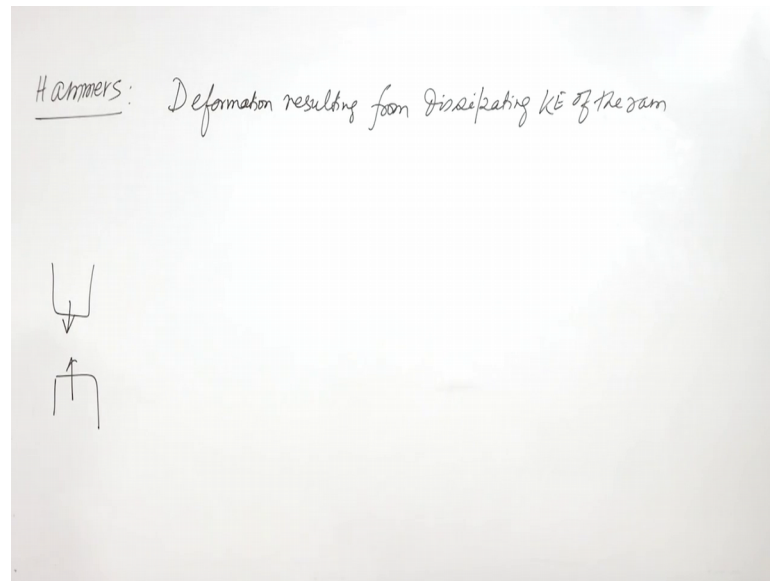 Hammers: Deformation resulting from Dissipating KE of the ram